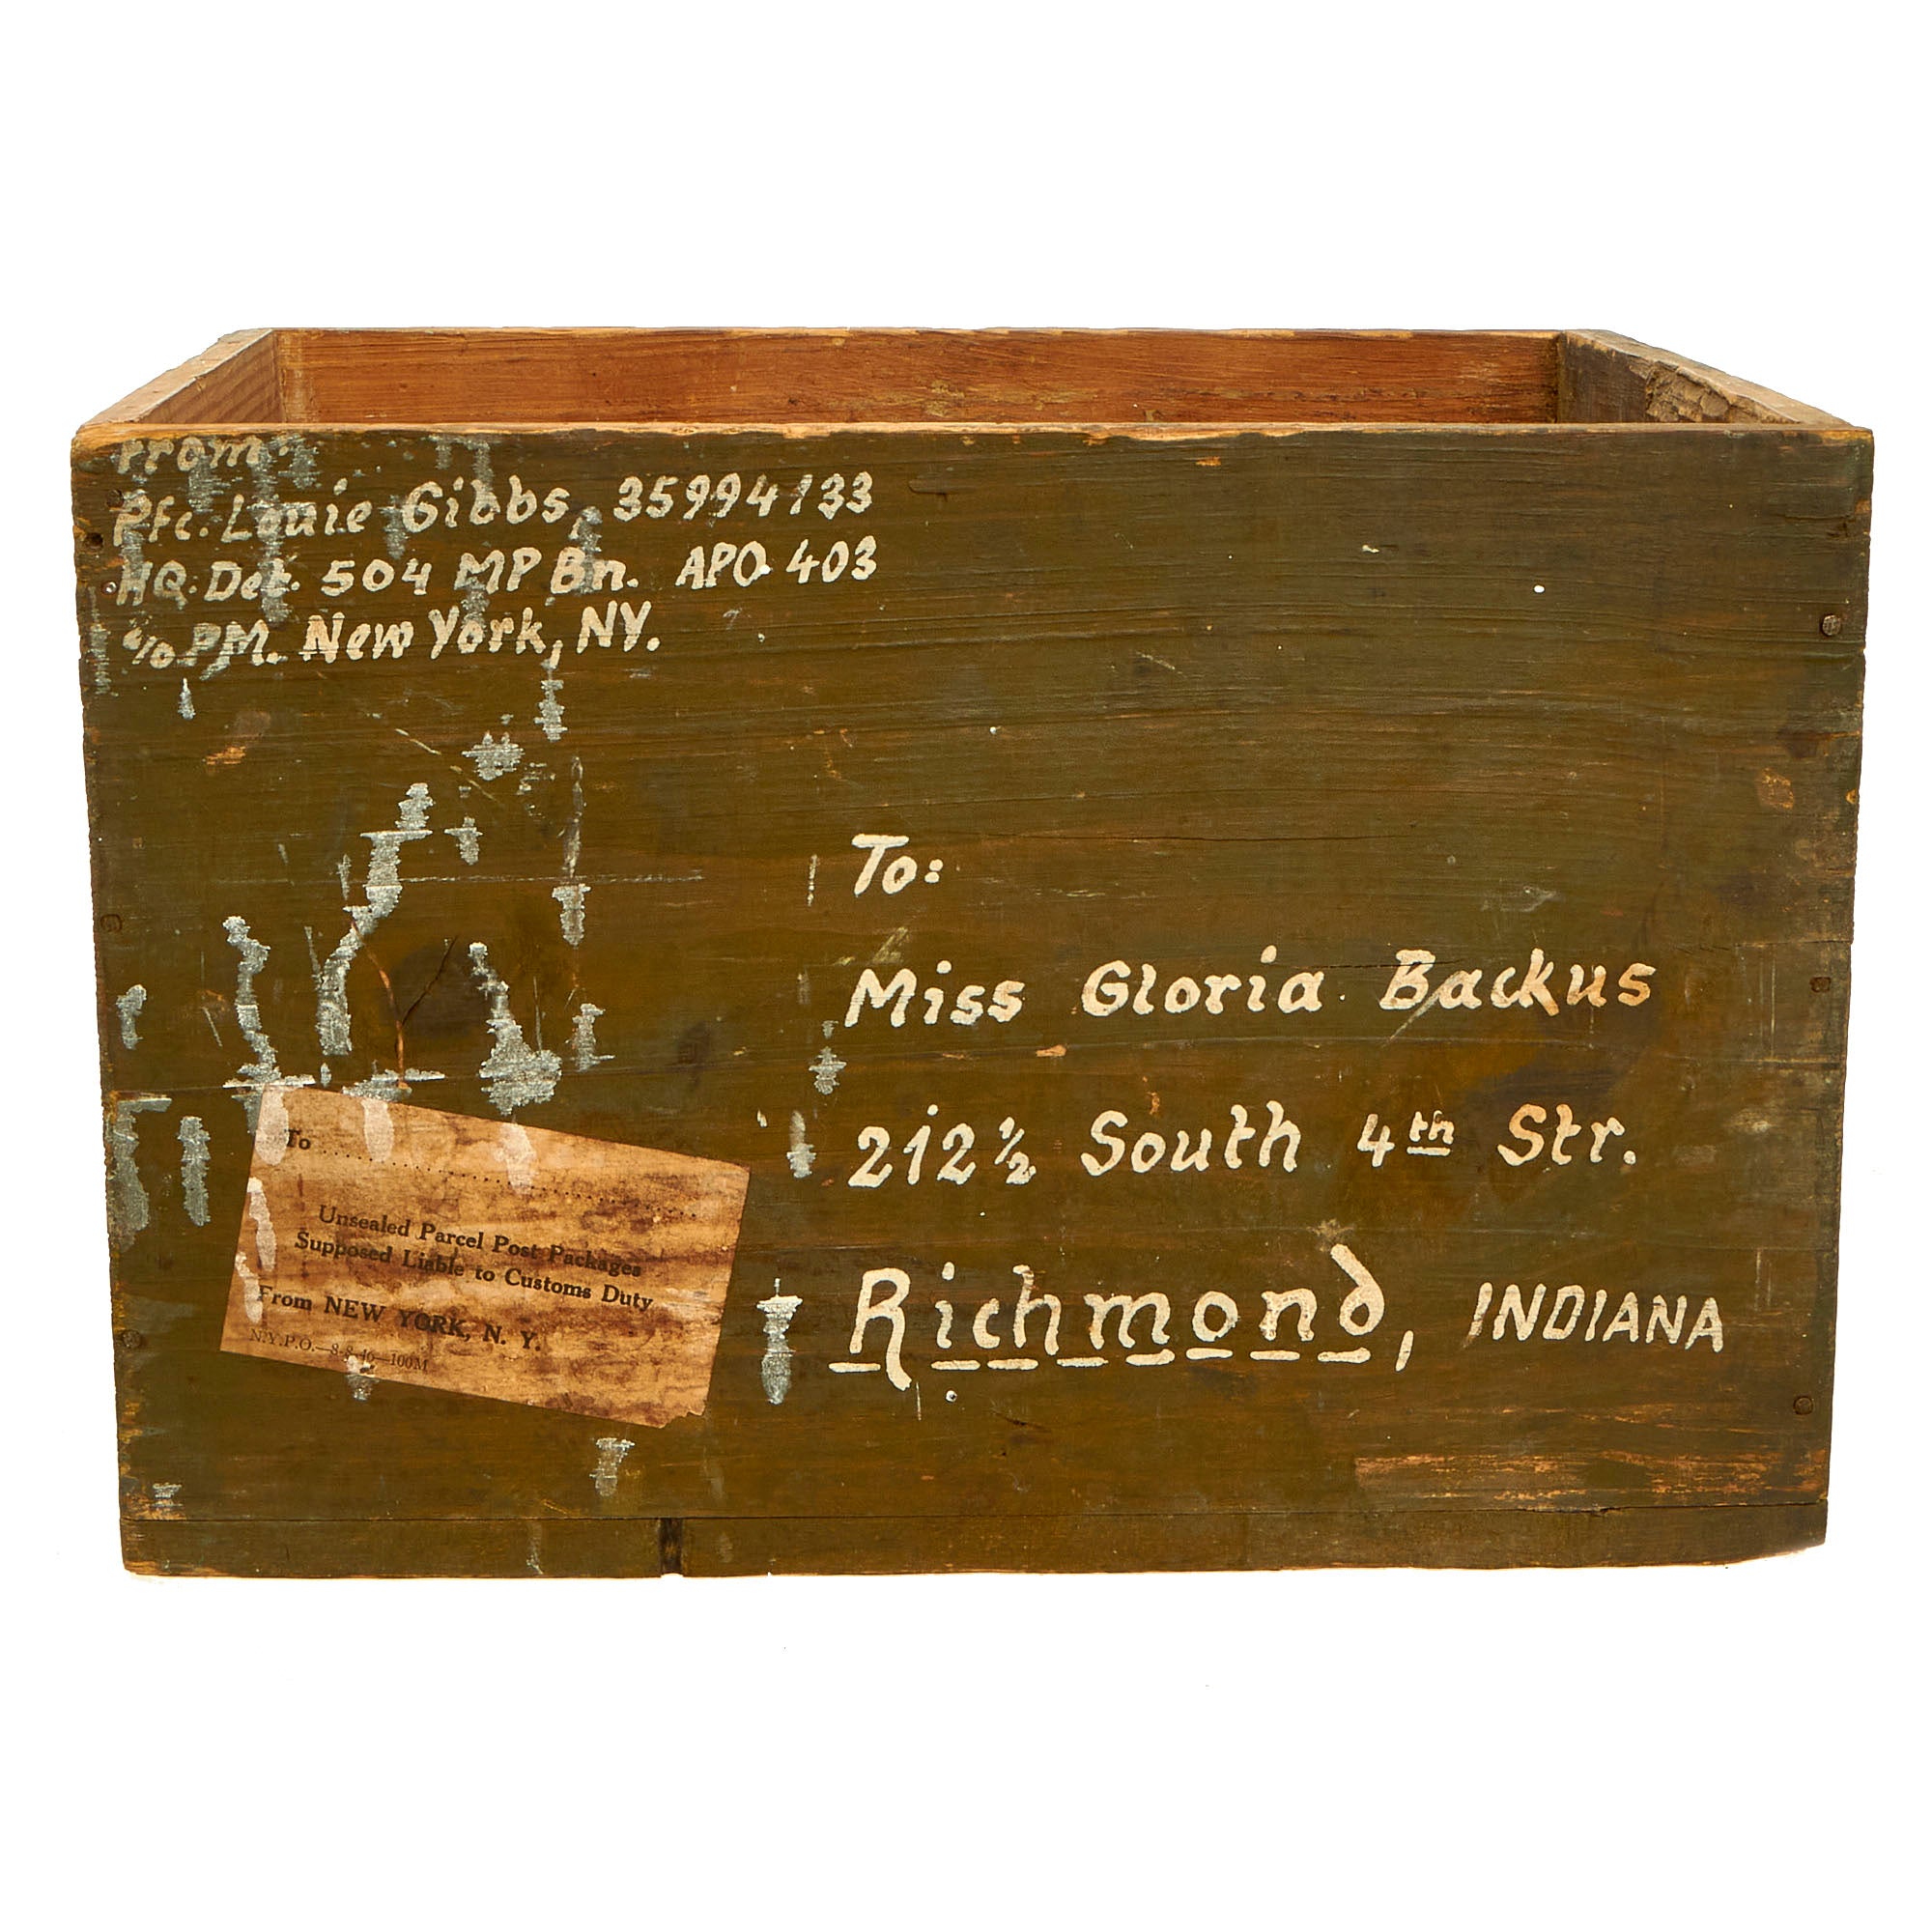 From:
Pfc. Louie Gibbs, 35994133
HQ. Det. 504 MP Bn. APO 403
c/o PM. New York, NY.
To:
Miss Gloria Backus
212 ½ South 4th Str.
Richmond, INDIANA
To
Unsealed Parcel Post Packages
Supposed Liable to Customs Duty
From NEW YORK, N. Y.
N.Y.P.O.—8-8-40—100M